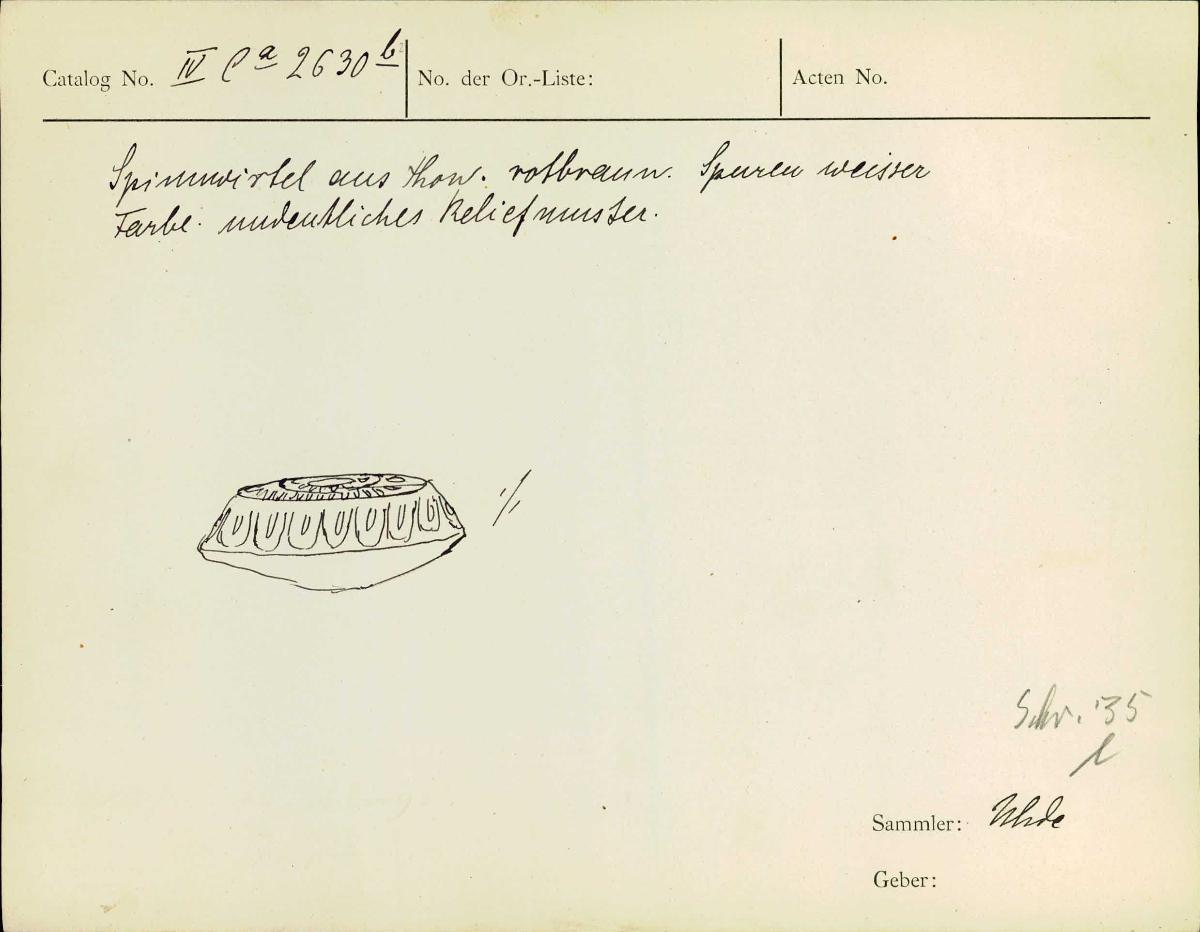 Catalog No. IV Ca 2630 b
No. der Or.-Liste:
Acten No.
Spinnwirtel aus Thon. rotbraun. Spuren weisser
Farbe. undeutliches Reliefmuster.
1/1
Schr. '35
Sammler: Uhde
Geber: